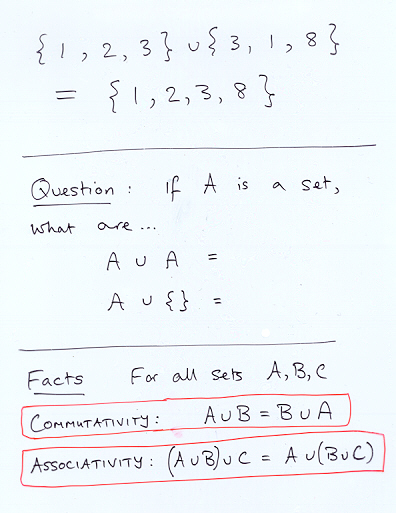 {1, 2, 3} ∪ {3, 1, 8}
= {1, 2, 3, 8}
Question: If A is a set,
what are...
A ∪ A =
A ∪ {} =
Facts For all sets A, B, C
COMMUTATIVITY: A ∪ B = B ∪ A
ASSOCIATIVITY: (A ∪ B) ∪ C = A ∪ (B ∪ C)